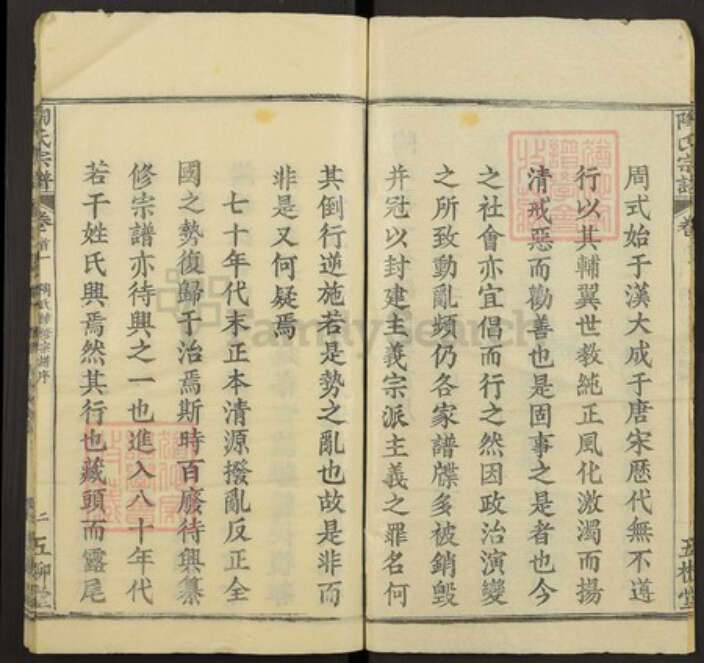 陶氏宗譜
周式始于漢大成于唐宋歷代無不遵
行以其輔翼世教純正風化激濁而揚
清戒惡而勸善也是固事之是者也今
之社會亦宜倡而行之然因政治演變
之所致動亂頻仍各家譜牒多被銷毀
并冠以封建主義宗派主義之罪名何
其倒行逆施若是勢之亂也故是非而
非是又何疑焉
七十年代末正本清源撥亂反正全
國之勢復歸于治焉斯時百廢待興纂
修宗譜亦待興之一也進入八十年代
若干姓氏興焉然其行也藏頭而露尾
陶氏宗譜 卷首一 二 五柳堂
FamilySearch